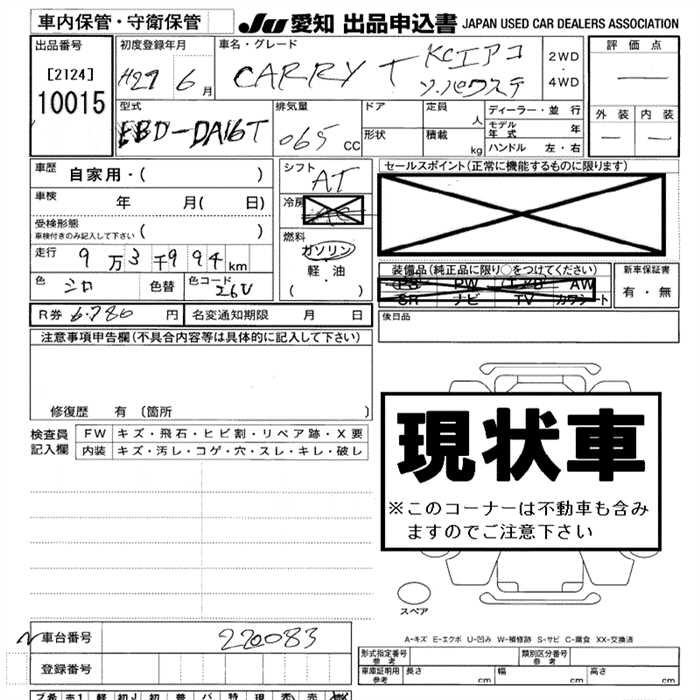 車内保管・守衛保管
JU 愛知 出品申込書 JAPAN USED CAR DEALERS ASSOCIATION
出品番号 [2124] 10015
初度登録年月 H27 6月
車名・グレード CARRY T KCエアコン・パワステ
2WD・4WD
評価点 —
外装 内装
— —
型式 EBD-DA16T
排気量 065 CC
ドア 形状
定員 人
積載 kg
ディーラー・並行
モデル年式 年
ハンドル 左・右
車歴 自家用・( )
車検 年 月( 日)
受検形態 ( )
車検付きのみ記入して下さい
走行 9万3千994km
色 シロ 色替 色コード 26U
シフト AT
冷房 AC
燃料 ガソリン
軽・油
( ・ )
セールスポイント(正常に機能するものに限ります)
装備品(純正品に限り○をつけてください)
PS PW エアB AW
SR ナビ TV カワシート
新車保証書
有・無
R券 6.780円 名変通知期限 月 日
後日品
注意事項申告欄(不具合内容等は具体的に記入して下さい)
修復歴 有 〔箇所 〕
検査員記入欄
FW キズ・飛石・ヒビ割・リペア跡・X要
内装 キズ・汚レ・コゲ・穴・スレ・キレ・破レ
現状車
※このコーナーは不動車も含み
ますのでご注意下さい
スペア
A-キズ E-エクボ U-凹み W-補修跡 S-サビ C-腐食 XX-交換済
車台番号 220083
登録番号
形式指定番号 参考
類別区分番号 参考
車庫証明用 参考 長さ cm 幅 cm 高さ cm